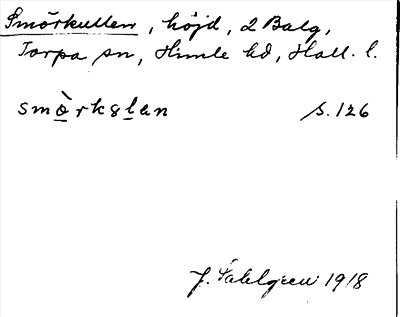 Smörkullen, höjd, 2 Balg,
Torpa sn, Himle hd, Hall. l.
smòrkslan s. 126
J. Sahlgren 1918